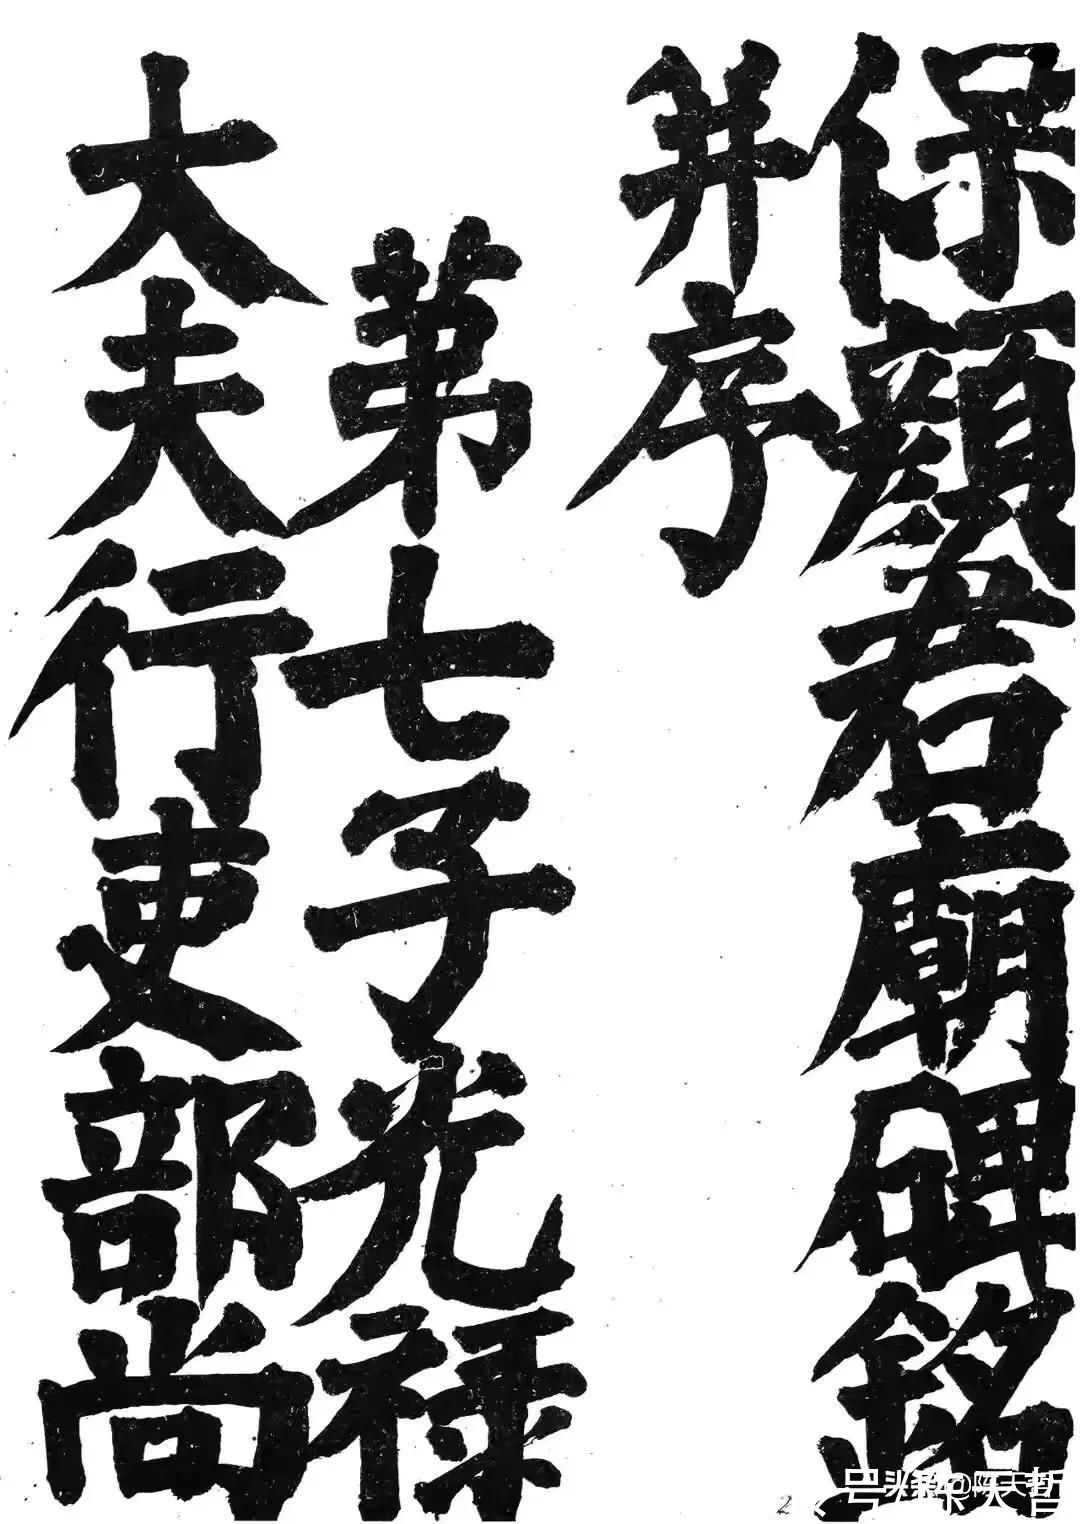 保顏君廟碑銘
并序
第七子光禄
大夫行吏部尚
头条@陈天哲
2